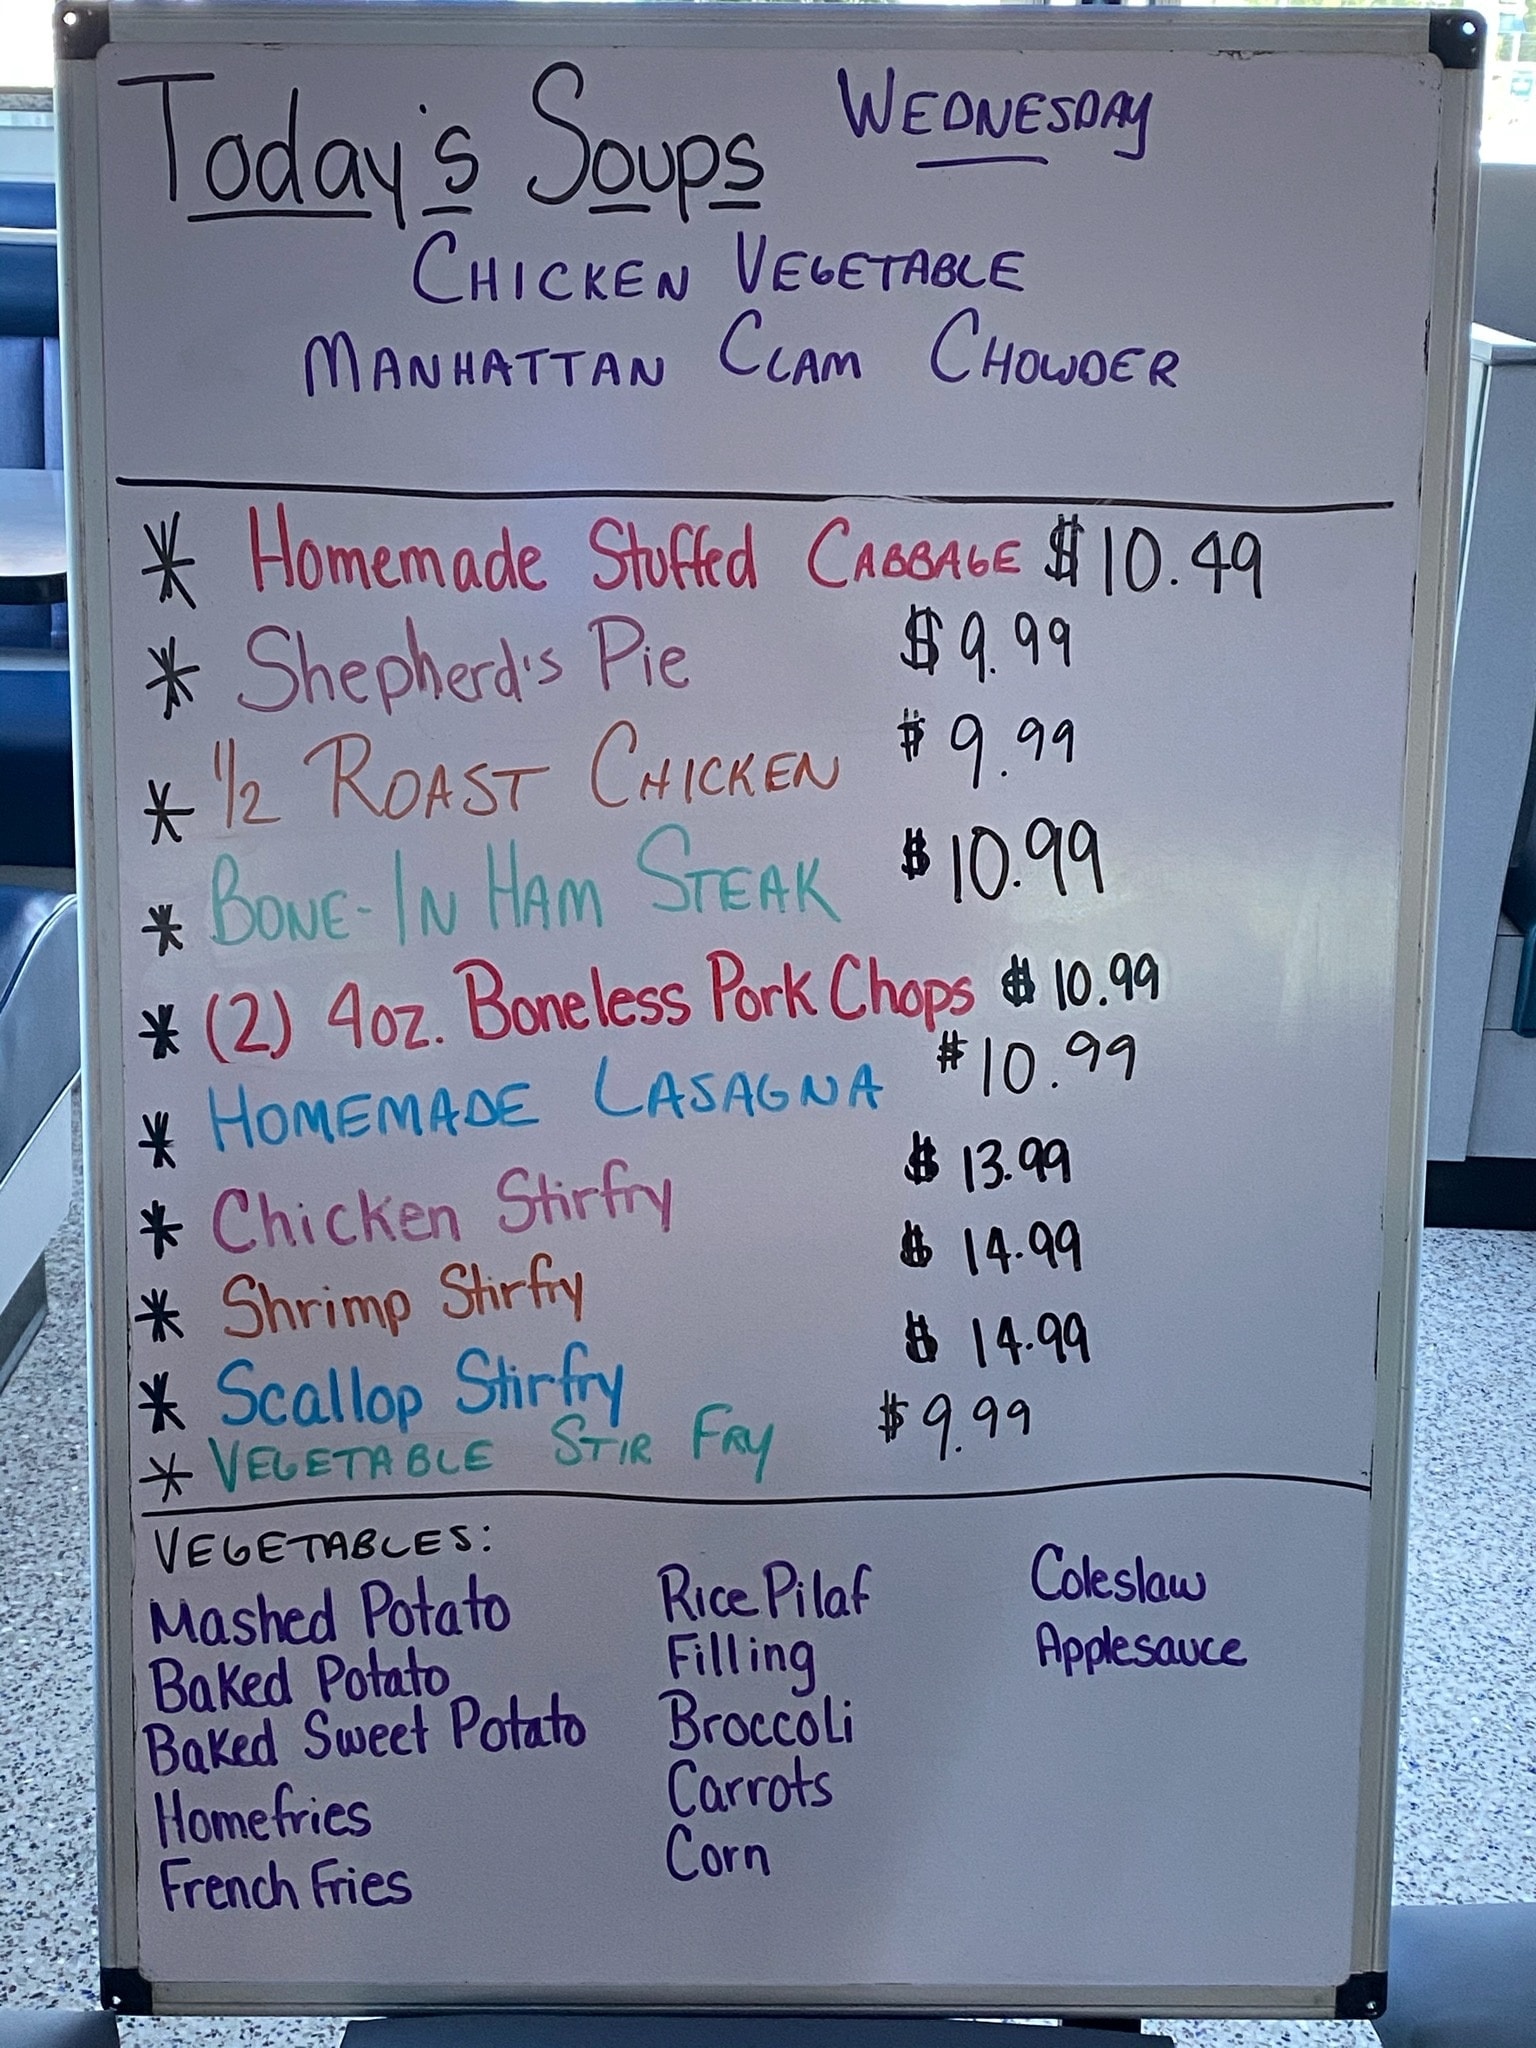 Today's Soups WEDNESDAY
CHICKEN VEGETABLE
MANHATTAN CLAM CHOWDER
* Homemade Stuffed CABBAGE $10.49
* Shepherd's Pie $9.99
* 1/2 ROAST CHICKEN $9.99
* BONE-IN HAM STEAK $10.99
* (2) 4oz. Boneless Pork Chops $10.99
* HOMEMADE LASAGNA $10.99
* Chicken Stirfry $13.99
* Shrimp Stirfry $14.99
* Scallop Stirfry $14.99
* VEGETABLE STIR FRY $9.99
VEGETABLES:
Mashed Potato
Baked Potato
Baked Sweet Potato
Homefries
French Fries
Rice Pilaf
Filling
Broccoli
Carrots
Corn
Coleslaw
Applesauce